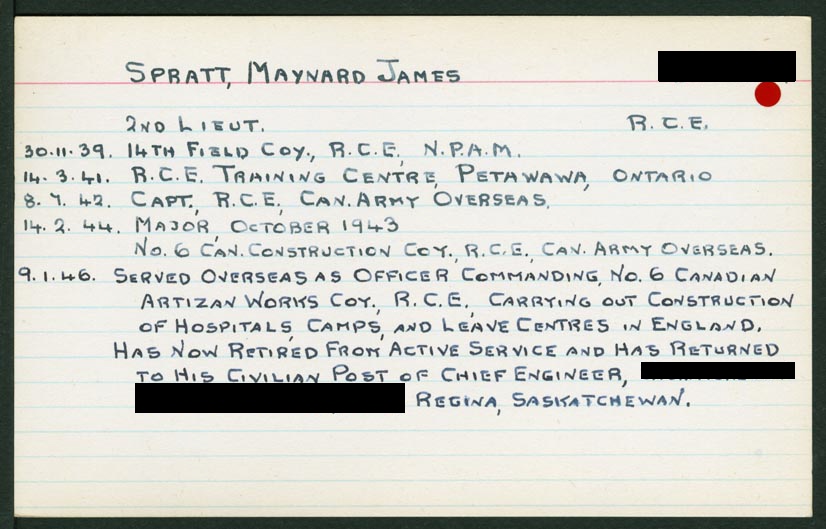 SPRATT, MAYNARD JAMES
2ND LIEUT. R.C.E.
30.11.39. 14TH FIELD COY., R.C.E., N.P.A.M.
14.3.41. R.C.E. TRAINING CENTRE, PETAWAWA, ONTARIO
8.7.42. CAPT., R.C.E., CAN. ARMY OVERSEAS.
14.2.44. MAJOR, OCTOBER 1943
NO. 6 CAN. CONSTRUCTION COY., R.C.E., CAN. ARMY OVERSEAS.
9.1.46. SERVED OVERSEAS AS OFFICER COMMANDING, NO. 6 CANADIAN
ARTIZAN WORKS COY., R.C.E., CARRYING OUT CONSTRUCTION
OF HOSPITALS, CAMPS, AND LEAVE CENTRES IN ENGLAND.
HAS NOW RETIRED FROM ACTIVE SERVICE AND HAS RETURNED
TO HIS CIVILIAN POST OF CHIEF ENGINEER,
REGINA, SASKATCHEWAN.